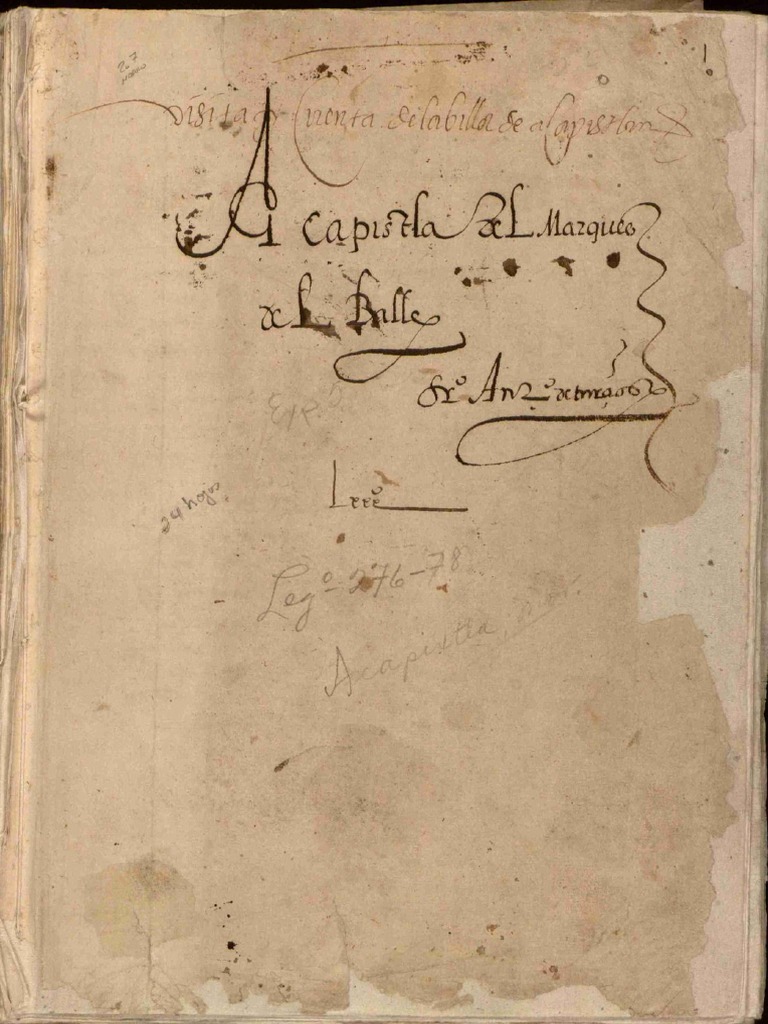 1
visita y cuenta de la billa de acapistla
Acapistla del Marques
del Balle
Sr.º Ant.º de turçios
24 hojas
Leg.º 276-78
Acapixtla